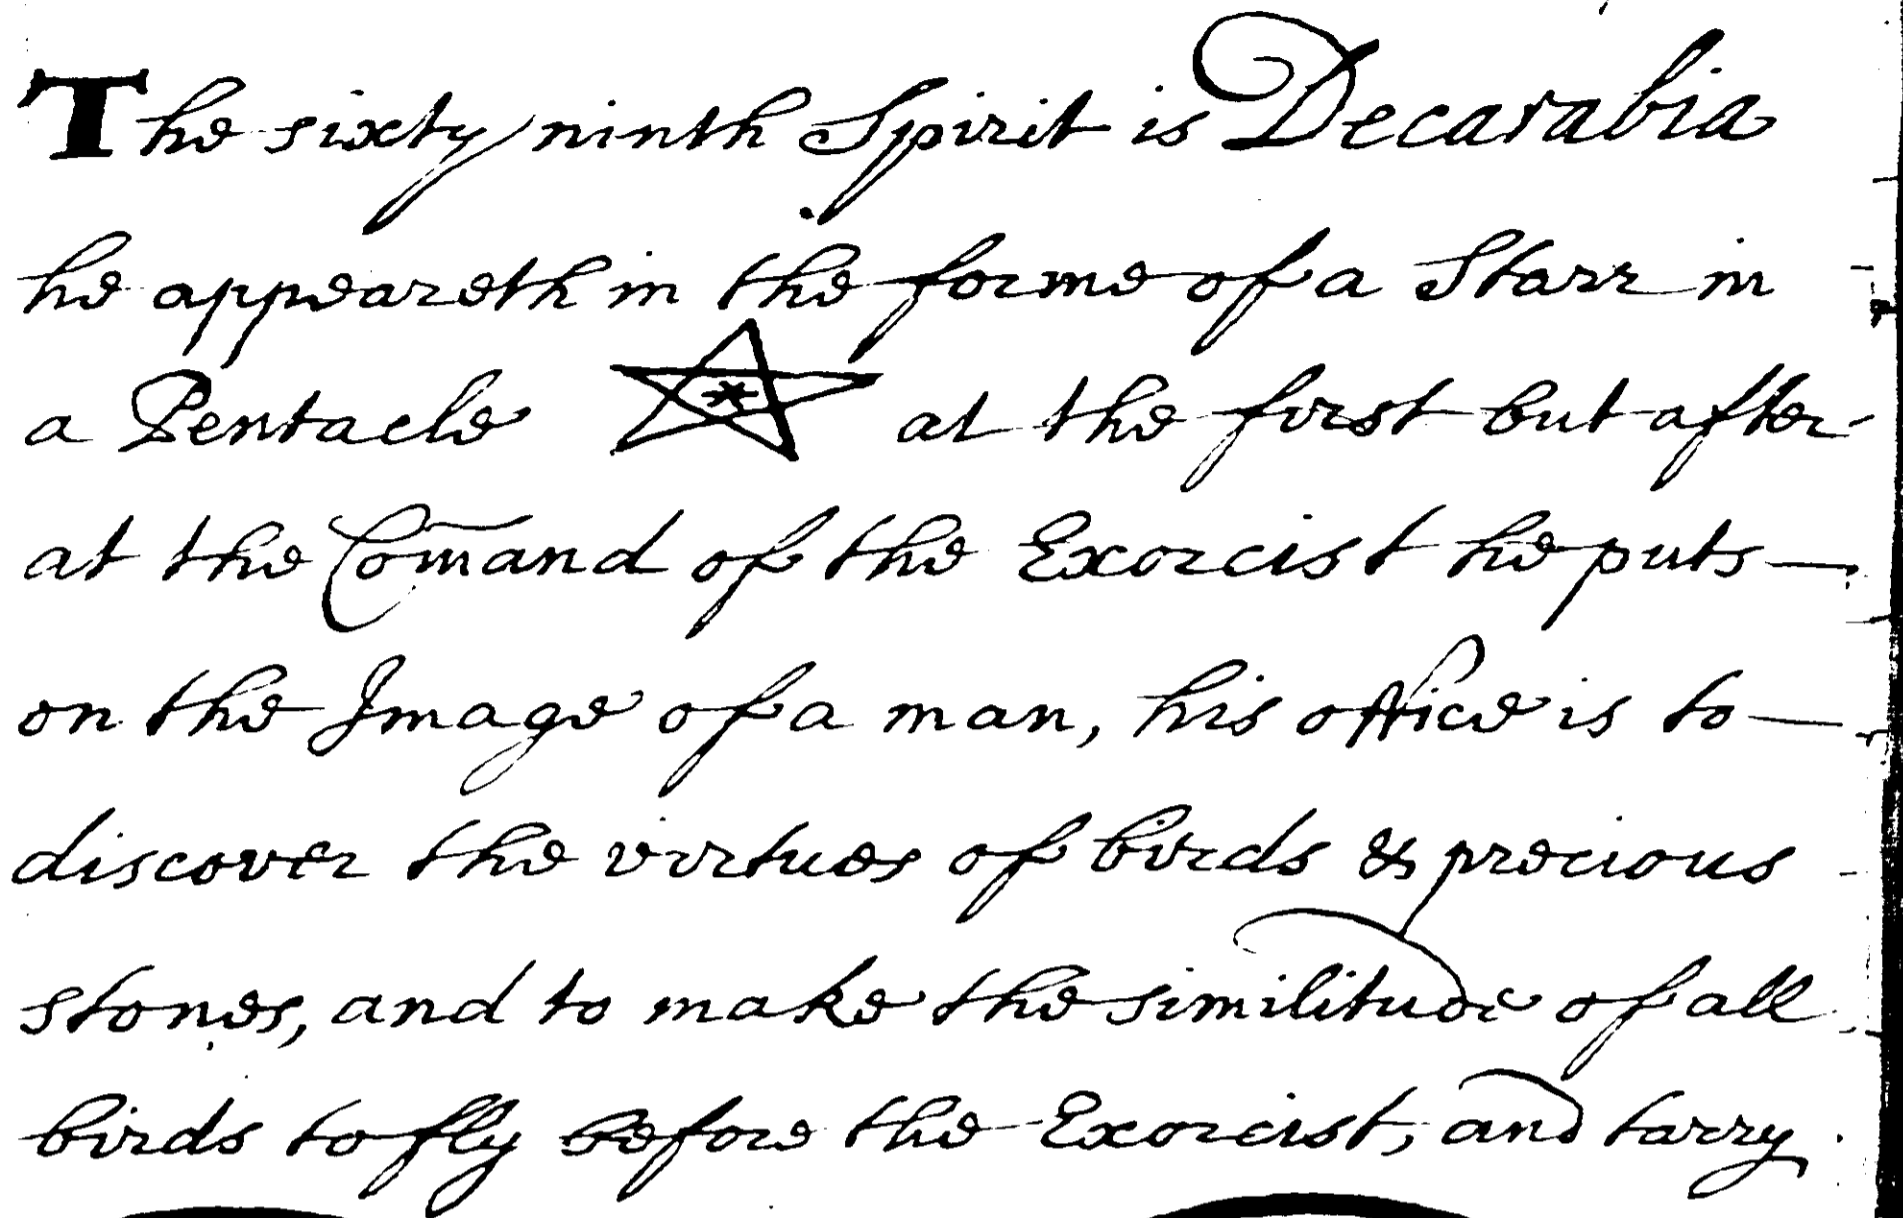 The sixty ninth Spirit is Decarabia
he appeareth in the forme of a Starr in
a Pentacle at the first but after
at the Com̄and of the Exorcist he puts—
on the Image of a man, his office is to—
discover the virtues of birds & precious
stones, and to make the similitude of all
birds to fly before the Exorcist, and tarry